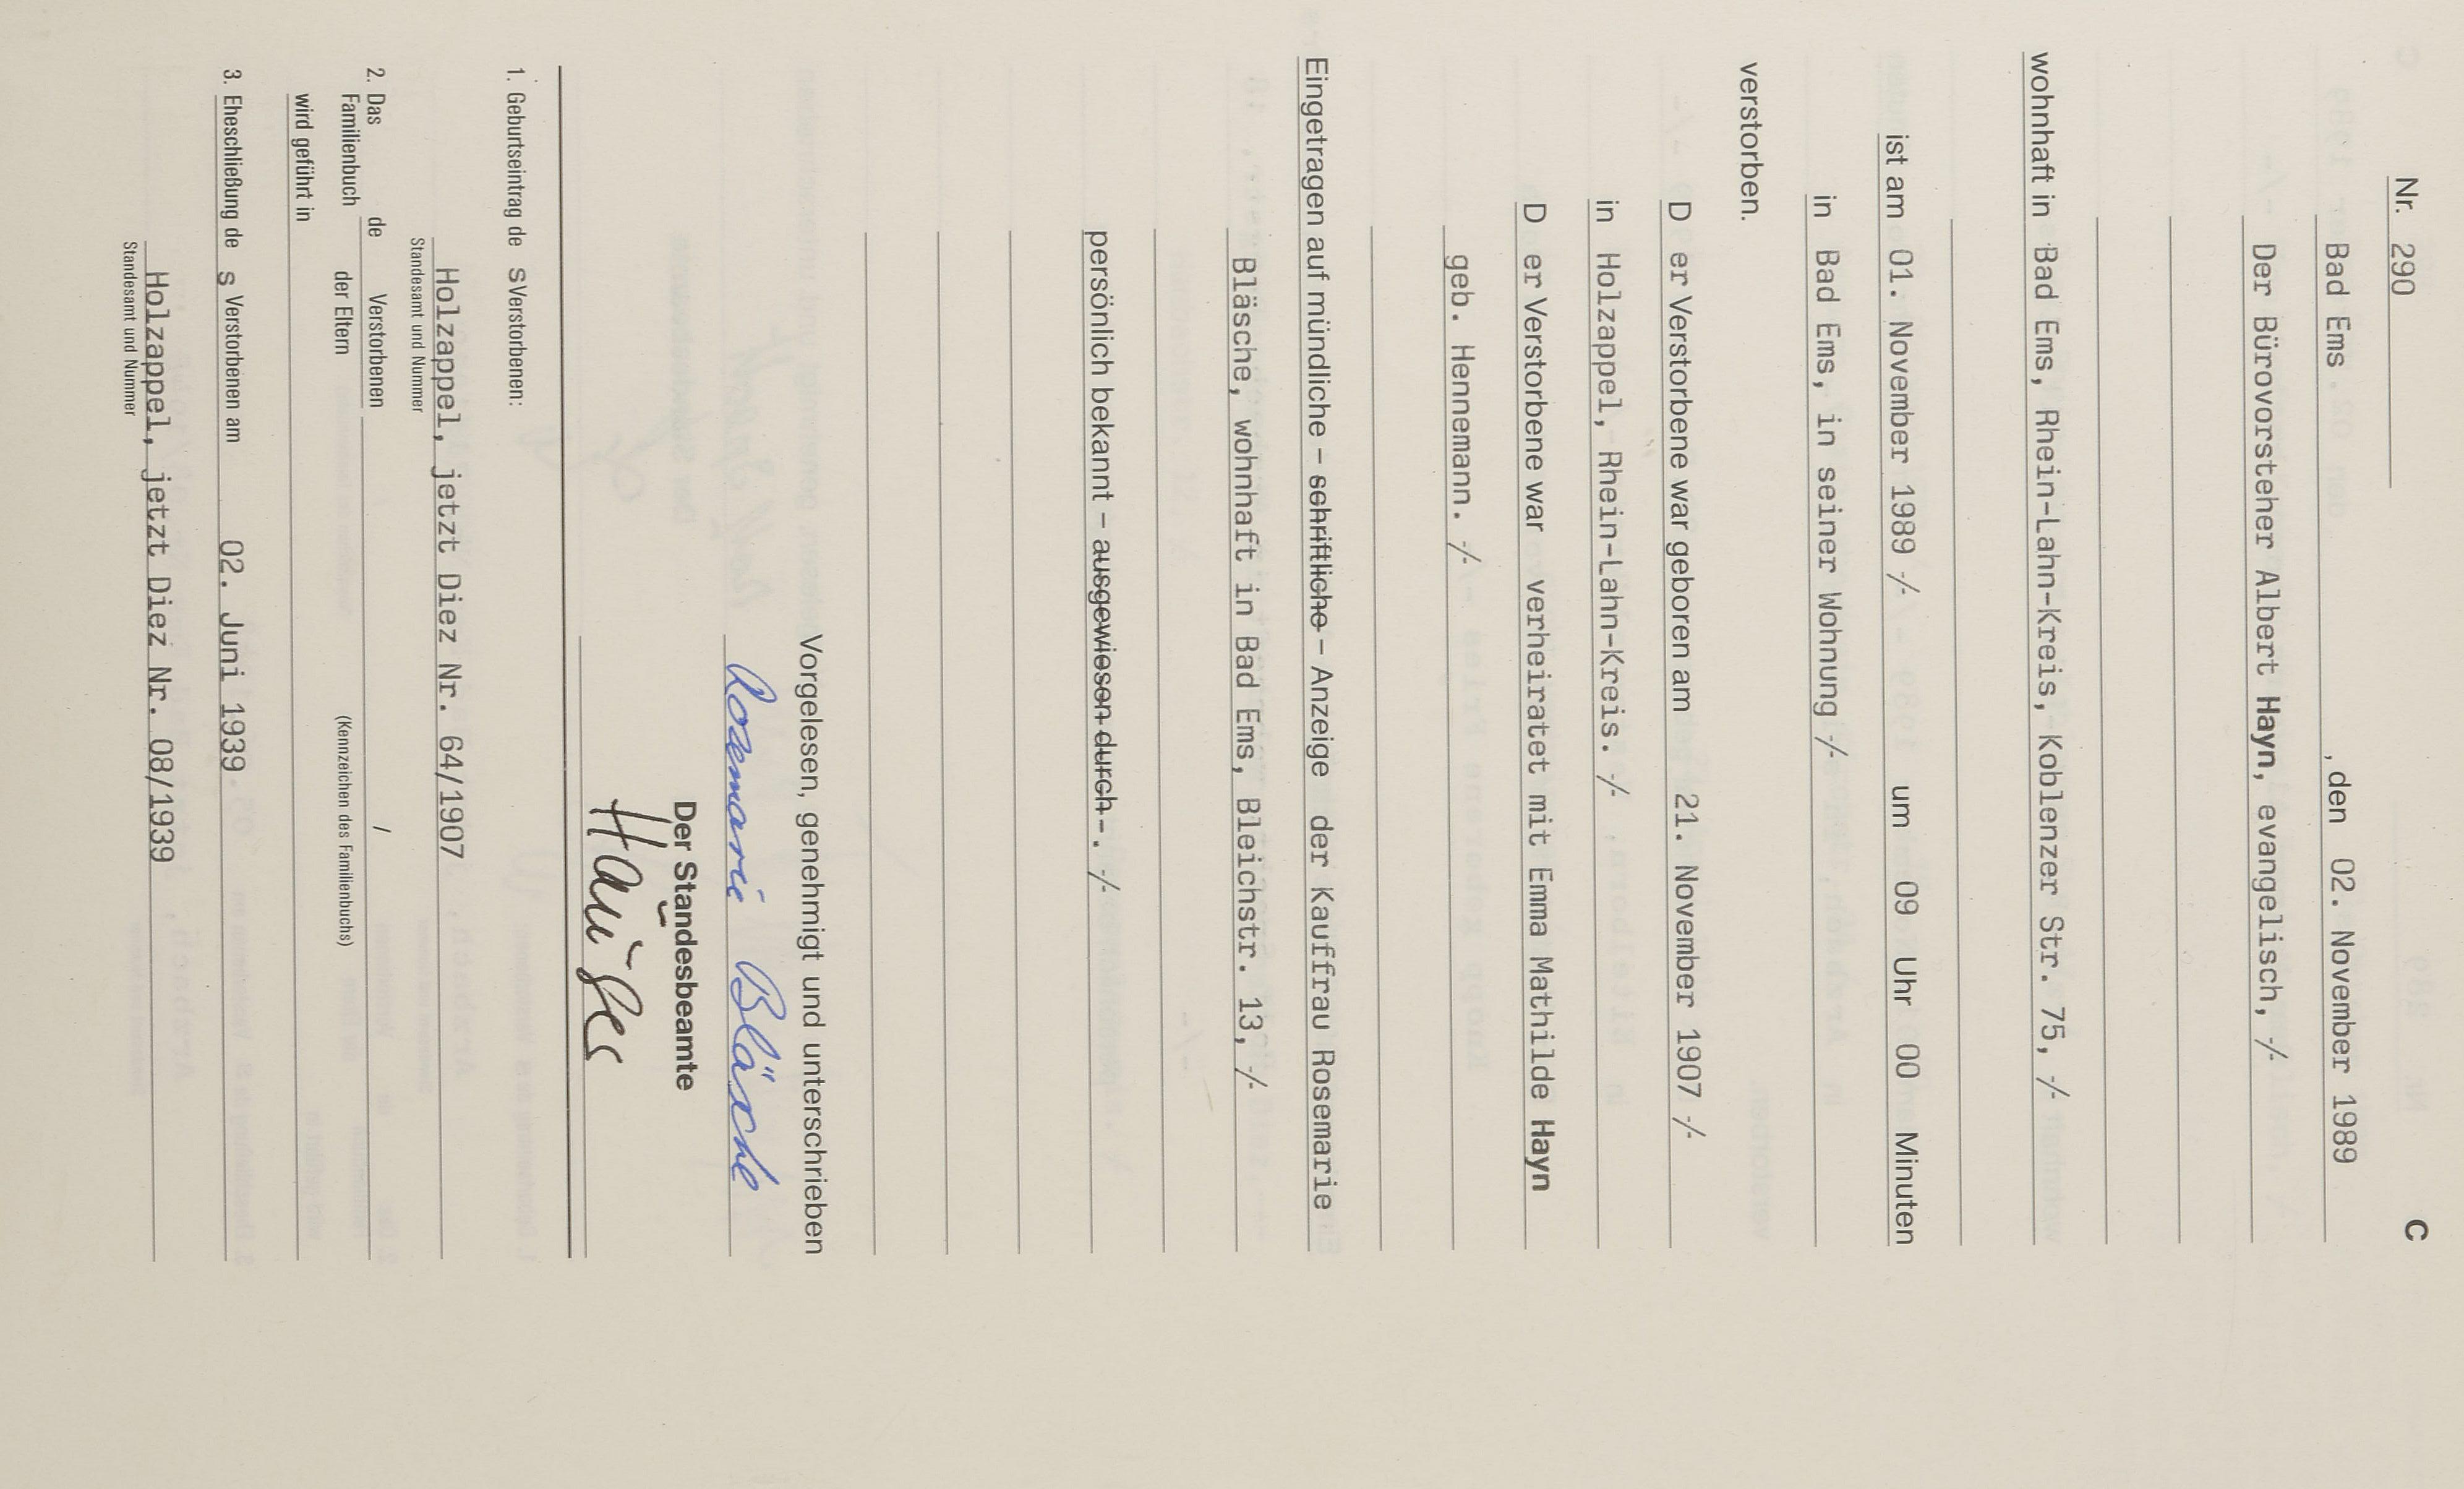 C
Nr. 290
Bad Ems , den 02. November 1989
Der Bürovorsteher Albert Hayn, evangelisch, -/-
wohnhaft in Bad Ems, Rhein-Lahn-Kreis, Koblenzer Str. 75, -/-
ist am 01. November 1989 -/- um 09 Uhr 00 Minuten
in Bad Ems, in seiner Wohnung -/-
verstorben.
D er Verstorbene war geboren am 21. November 1907 -/-
in Holzappel, Rhein-Lahn-Kreis. -/-
D er Verstorbene war verheiratet mit Emma Mathilde Hayn
geb. Hennemann. -/-
Eingetragen auf mündliche – schriftliche – Anzeige der Kauffrau Rosemarie
Bläsche, wohnhaft in Bad Ems, Bleichstr. 13, -/-
persönlich bekannt – ausgewiesen durch – . -/-
Vorgelesen, genehmigt und unterschrieben
Rosemarie Bläsche
Der Standesbeamte
1. Geburtseintrag de s Verstorbenen:
Holzappel, jetzt Diez Nr. 64/1907
Standesamt und Nummer
2. Das Familienbuch de Verstorbenen / der Eltern
(Kennzeichen des Familienbuchs)
wird geführt in
3. Eheschließung de s Verstorbenen am 02. Juni 1939
Holzappel, jetzt Diez Nr. 08/1939
Standesamt und Nummer